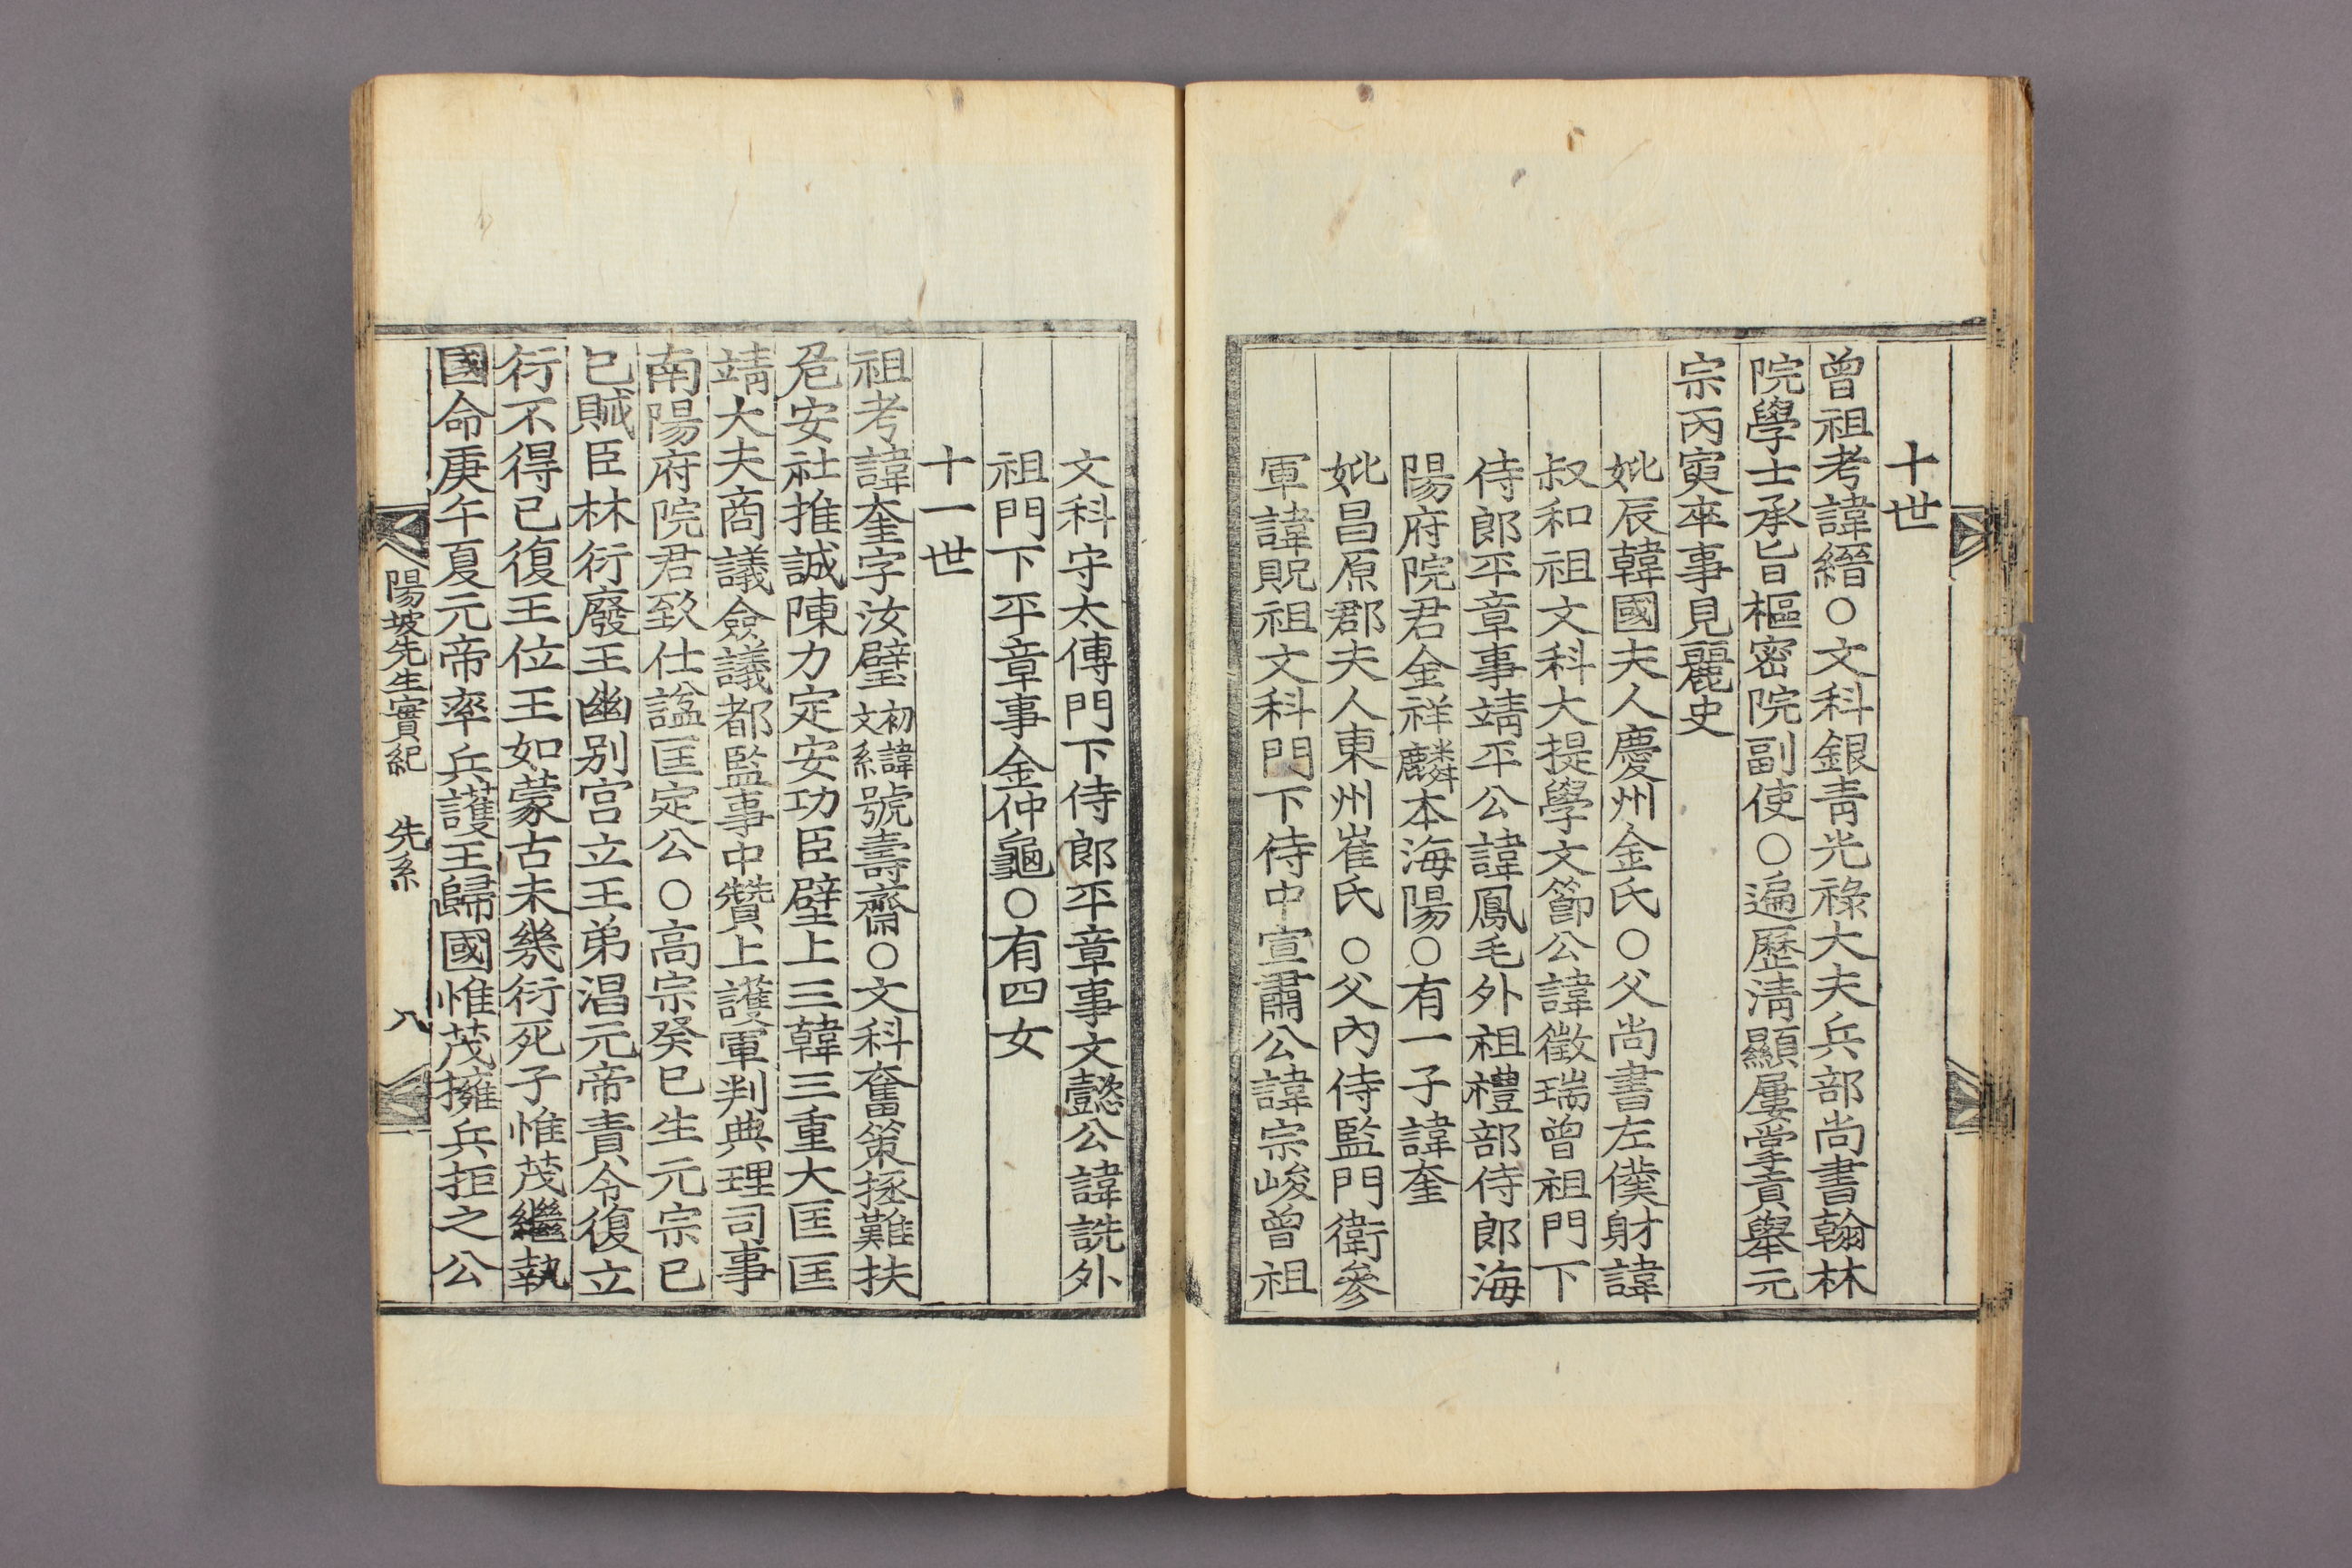 十世
曾祖考諱縉○文科銀靑光祿大夫兵部尙書翰林
院學士承旨樞密院副使○遍歷淸顯屢掌貢擧元
宗丙寅卒事見麗史
妣辰韓國夫人慶州金氏○父尙書左僕財諱
叔和祖文科大提學文節公諱徵瑞曾祖門下
侍郞平章事靖平公諱鳳毛外祖禮部侍郞海
陽府院君金祥麟本海陽○有一子諱奎
妣昌原郡夫人東州崔氏○父內侍監門衛參
軍諱貺祖文科門下侍中宣肅公諱宗峻曾祖
文科守太傅門下侍郞平章事文懿公諱詵外
祖門下平章事金仲龜○有四女
十一世
祖考諱奎字汝璧初諱文系號壽齋○文科奮策拯難扶
危安社推誠陳力定安功臣壁上三韓三重大匡匡
靖大夫商議僉議都監事中贊上護軍判典理司事
南陽府院君致仕諡匡定公○高宗癸巳生元宗己
巳賊臣林衍廢王幽別宮立王弟淐元帝責令復立
衍不得已復王位王如蒙古未幾衍死子惟茂繼執
國命庚午夏元帝率兵護王歸國惟茂擁兵拒之公
陽坡先生實紀 先系 八